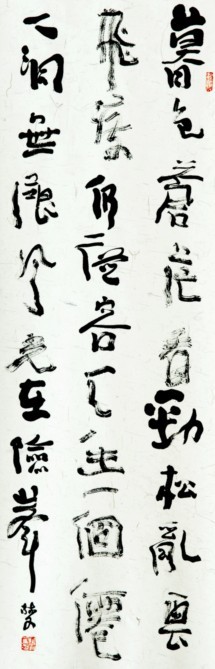 暮色蒼茫看勁松亂雲
飛渡仍從容天生一個僊
人洞無限風光在險峯